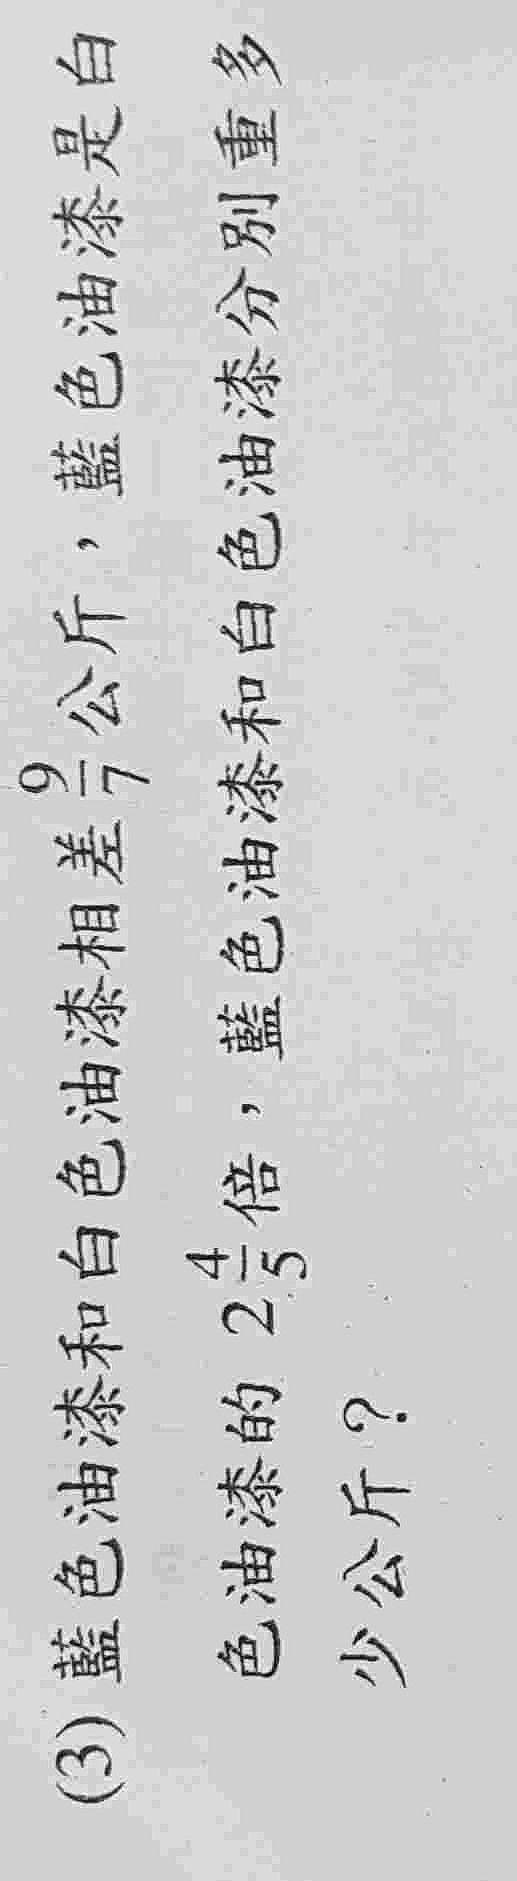 (3) 藍色油漆和白色油漆相差 9/7 公斤，藍色油漆是白
色油漆的 2 4/5 倍，藍色油漆和白色油漆分別重多
少公斤？